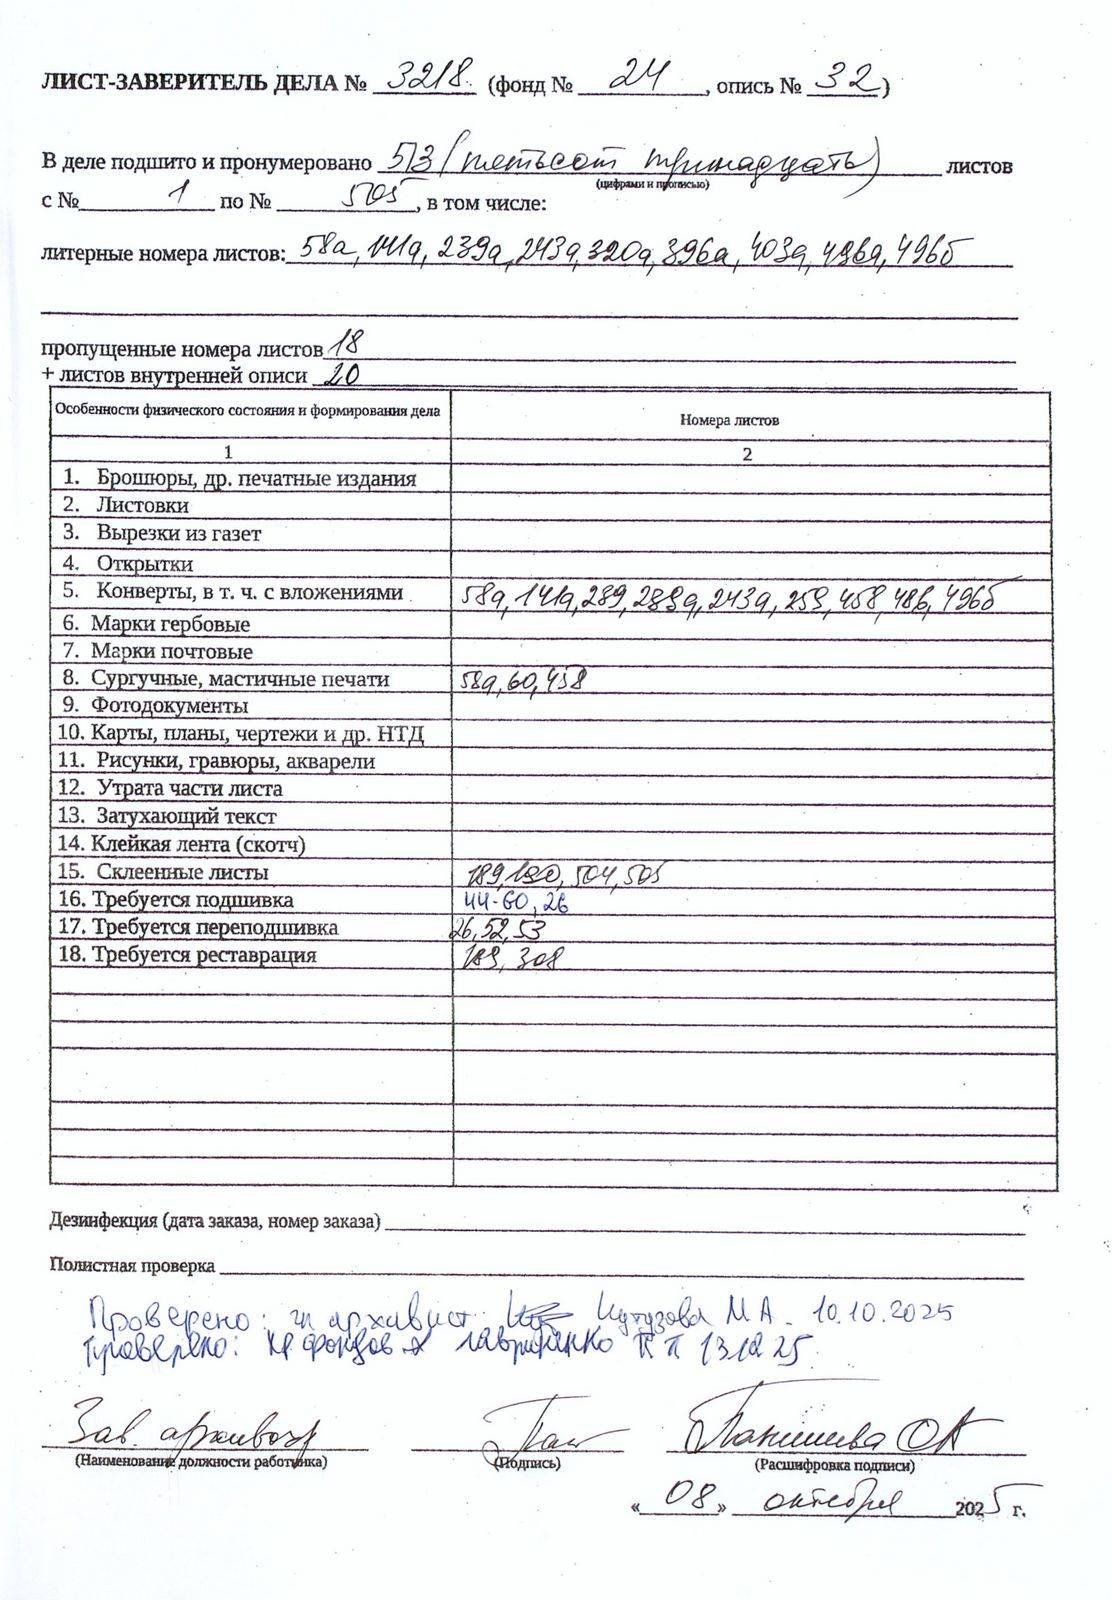 ЛИСТ-ЗАВЕРИТЕЛЬ ДЕЛА № 3218 (фонд № 24, опись № 32)
В деле подшито и пронумеровано 513 (пятьсот тринадцать) листов
(цифрами и прописью)
с № 1 по № 505, в том числе:
литерные номера листов: 58а, 141а, 239а, 243а, 320а, 396а, 403а, 496а, 496б
пропущенные номера листов 18
+ листов внутренней описи 20
Особенности физического состояния и формирования дела Номера листов
1 2
1. Брошюры, др. печатные издания
2. Листовки
3. Вырезки из газет
4. Открытки
5. Конверты, в т. ч. с вложениями 58а, 141а, 289, 289а, 243а, 259, 458, 486, 496б
6. Марки гербовые
7. Марки почтовые
8. Сургучные, мастичные печати 58а, 60, 458
9. Фотодокументы
10. Карты, планы, чертежи и др. НТД
11. Рисунки, гравюры, акварели
12. Утрата части листа
13. Затухающий текст
14. Клейкая лента (скотч)
15. Склеенные листы 189, 190, 504, 505
16. Требуется подшивка 44-60, 26
17. Требуется переподшивка 26, 52, 53
18. Требуется реставрация 189, 308
Дезинфекция (дата заказа, номер заказа)
Полистная проверка
Проверено: гл архивист Кутузова М А. 10.10.2025
Проверено: хр фондов Лавриненко
Зав. архивохр
(Наименование должности работника) (Подпись) (Расшифровка подписи)
«08» октября 2025 г.